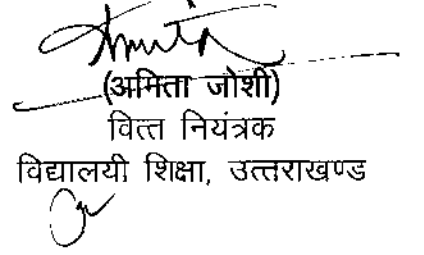 (अमिता जोशी)
वित्त नियंत्रक
विद्यालयी शिक्षा, उत्तराखण्ड